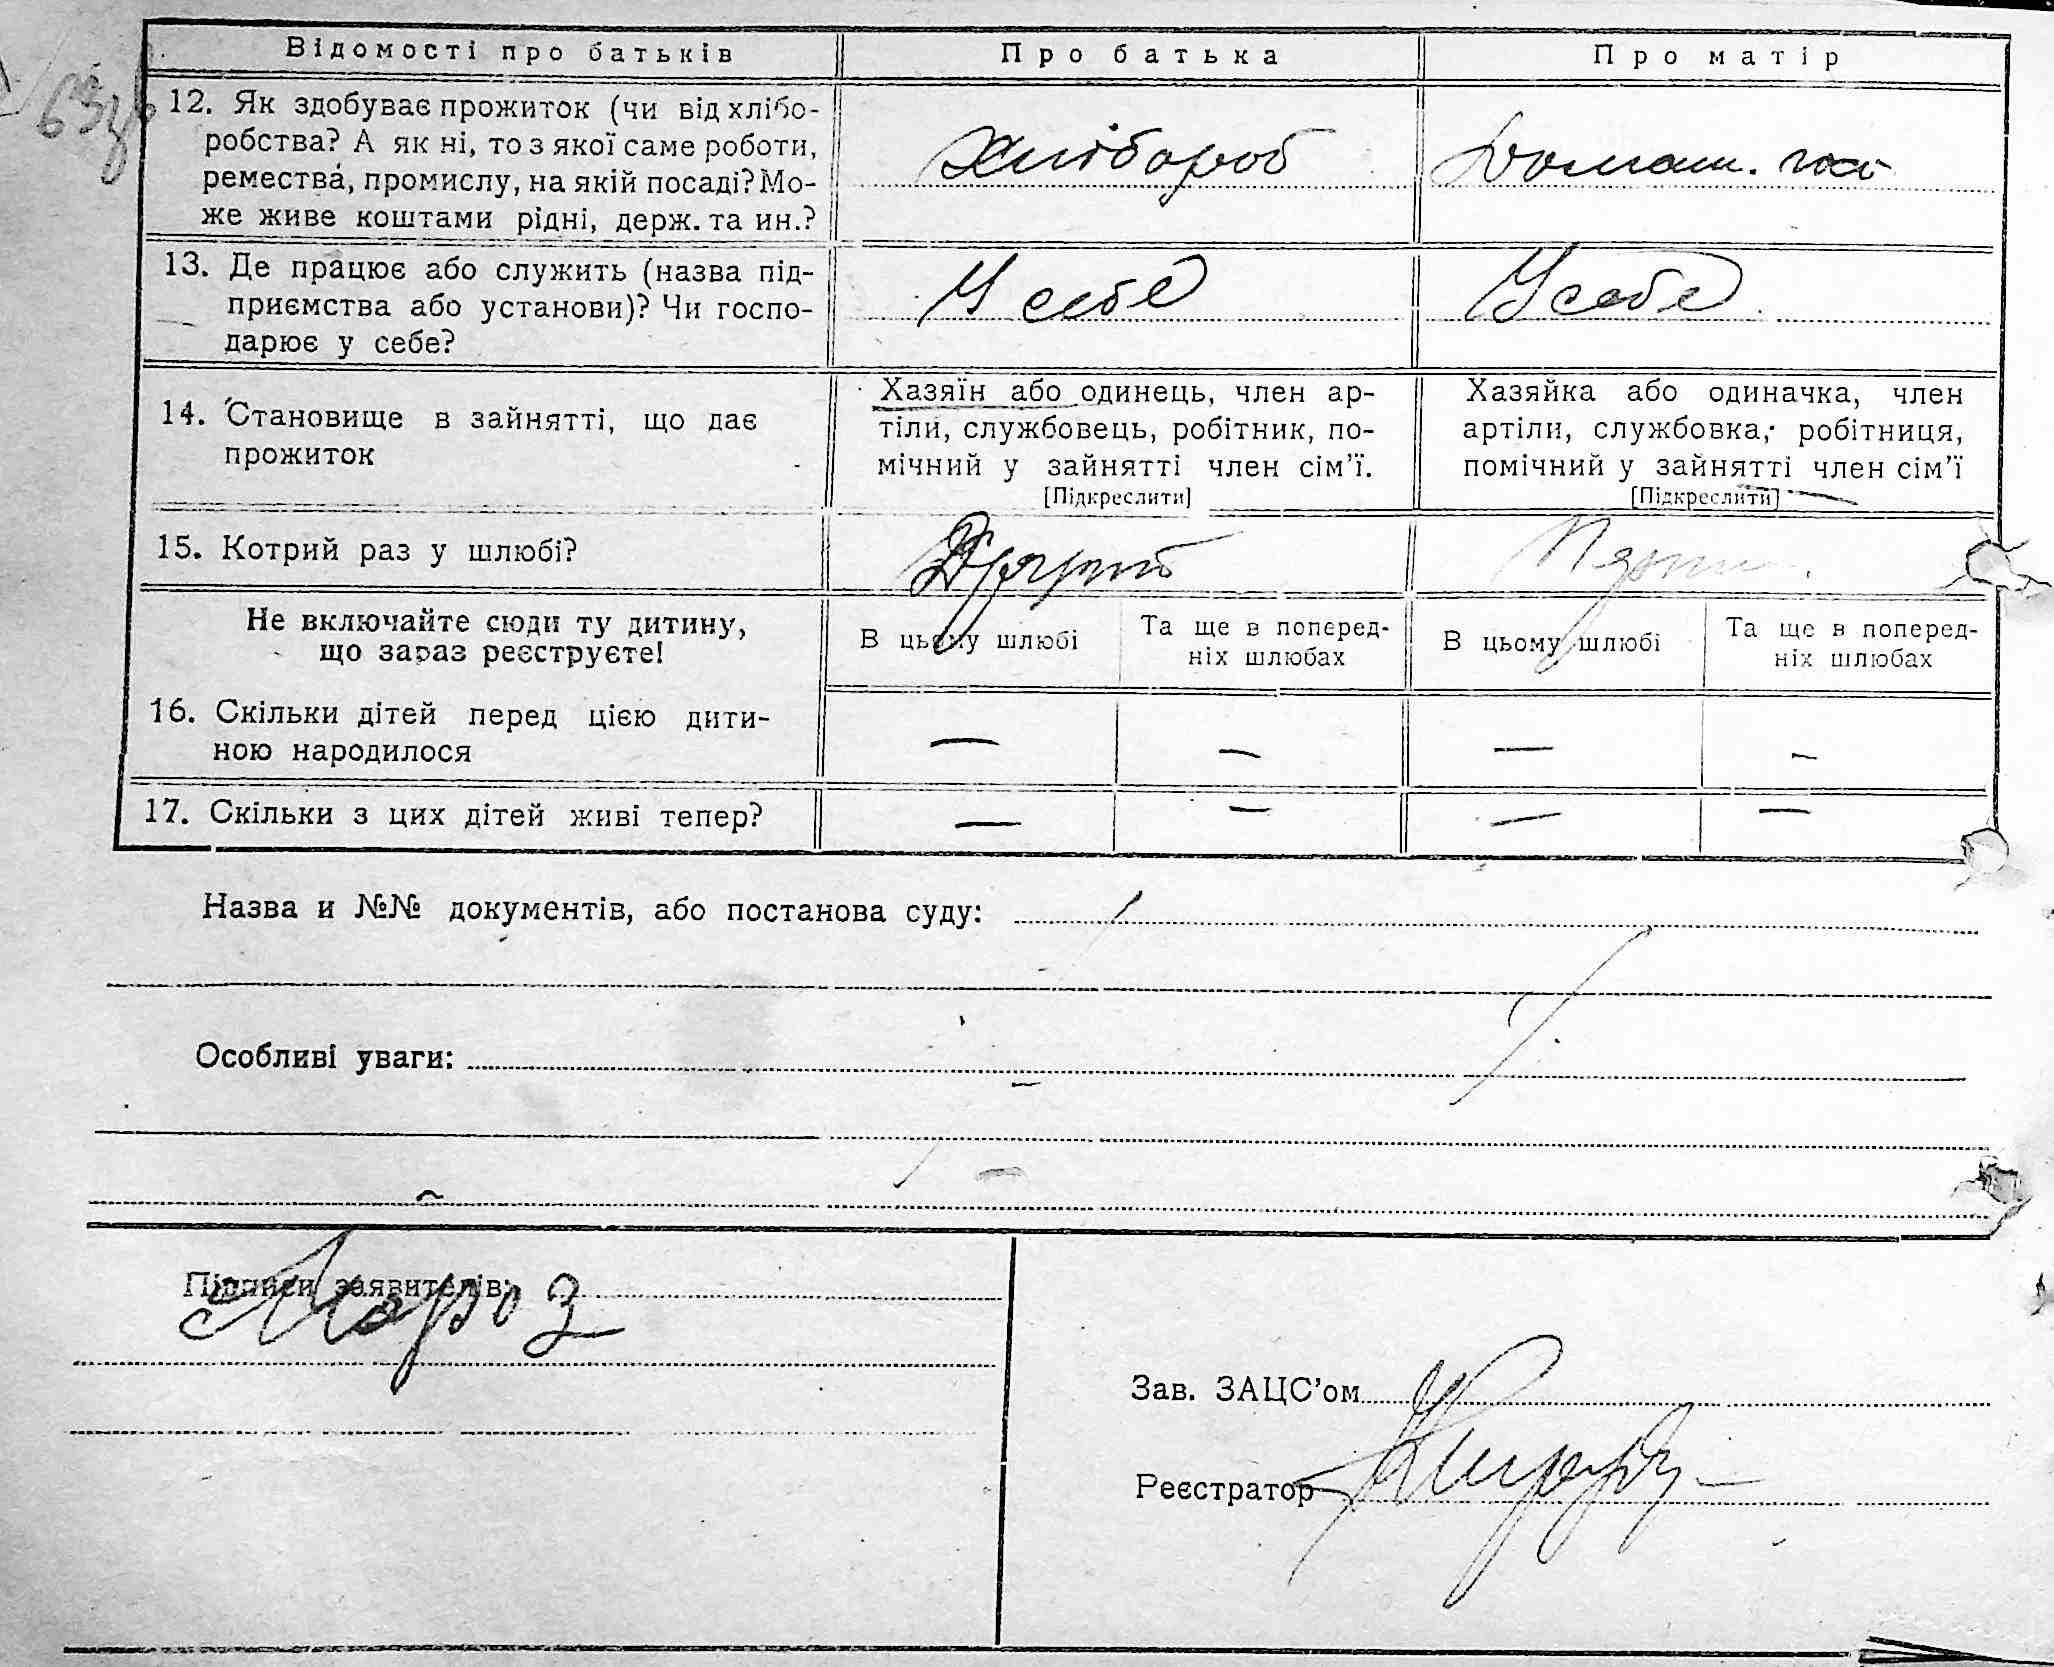 Відомості про батьків
Про батька
Про матір
12. Як здобуває прожиток (чи від хлібо-
робства? А як ні, то з якої саме роботи,
ремества, промислу, на якій посаді? Мо-
же живе коштами рідні, держ. та ин.?
Хлібороб
Домаш. гос
13. Де працює або служить (назва під-
приємства або установи)? Чи госпо-
дарює у себе?
У себе
У себе
14. Становище в зайнятті, що дає
прожиток
Хазяїн або одинець, член ар-
тіли, службовець, робітник, по-
мічний у зайнятті член сім'ї.
[Підкреслити]
Хазяйка або одиначка, член
артіли, службовка, робітниця,
помічний у зайнятті член сім'ї
[Підкреслити]
15. Котрий раз у шлюбі?
Не включайте сюди ту дитину,
що зараз реєструєте!
В цьому шлюбі
Та ще в поперед-
ніх шлюбах
В цьому шлюбі
Та ще в поперед-
ніх шлюбах
16. Скільки дітей перед цією дити-
ною народилося
— — — —
17. Скільки з цих дітей живі тепер?
— — — —
Назва и №№ документів, або постанова суду:
Особливі уваги:
Підписи заявителів:
Мороз
Зав. ЗАЦС'ом
Реєстратор